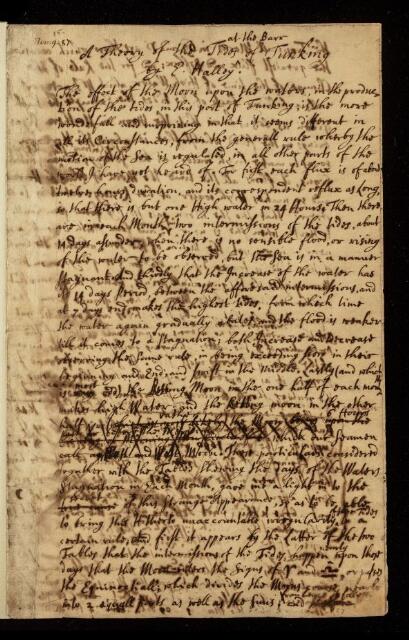 at the Barr
A Theory of the Tides of Tunking
By E. Halley.
The effect of the Moon upon the waters, in the produc-
tion of the tides in this port of Tunking; is the more
wonderfull and surprising in that it seems different in
all its Circumstances, from the generall rule wherby the
motion of the Sea is regulated, in all other parts of the
world I have yet heard of. For first, each flux is of about
twelve hours duration, and its correspondent reflux as long,
so that there is but one High water in 24 Hours; Then there
are in each Month two intermissions of the tides, about
14 days asunder, when there is no sensible flood, or rising
of the water to be observed, but the Sea is in a manner
stagnant; And thirdly that the Increase of the water has
14 days Period, between the intermissions, and
at 7 days end makes the highest tides, from which time
the water again gradually abates, and the flood is weaker
till it comes to a stagnation; both Increase and Decrease
observing the same rule, in being exceeding slow in their
beginning and End, and swift in the middle. Lastly (and which
is most odd) the Setting Moon in the one half of each month
makes high Water, and the Rising moon in the other
half
which our Seamen
call a Moon. These particulars considered
together with the Tables shewing the days of the Waters
Stagnation in Each Month, gave me a light into the
secret of this strange Appearance, so as to be able
to bring this hitherto unaccountable irregularity of these tides to a
certain rule; And first it appears by the latter of the two
Tables that the intermissions of the Tides happen nearly upon those
days that the Moon enters the Signs of ♈ and ♎, or passes
the Equinoctiall; which divides the Moons course nearly
into 2 equall parts as well as the Suns; and